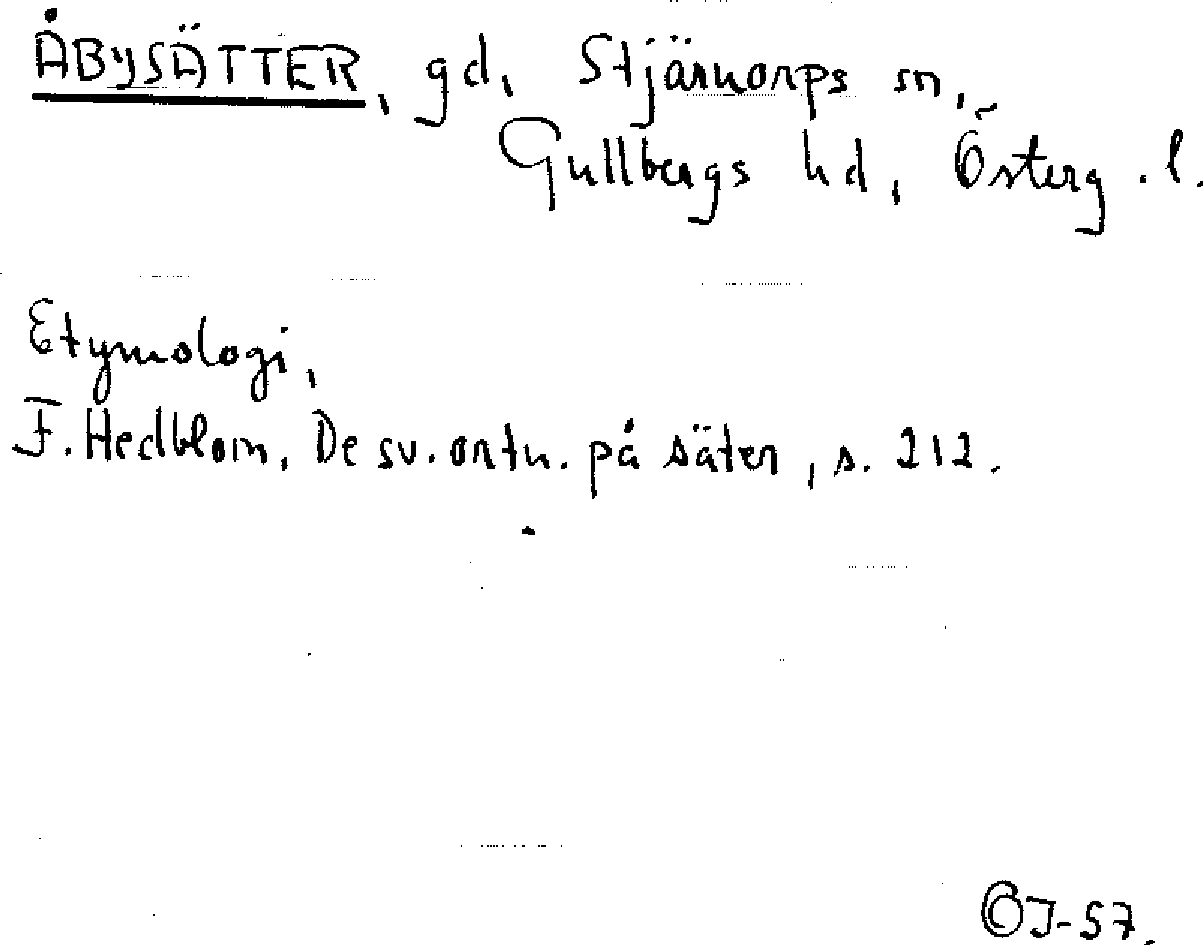 ÅBYSÄTTER, gd, Stjärnorps sn,
Gullbergs hd, Österg.l.
Etymologi,
F. Hedblom, De sv. ortn. på säter, s. 212.
OJ-57.